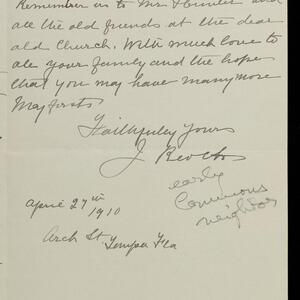 Remember us to Mr Hunter and
all the old friends at the dear
old Church. With much love to
all your family and the hope
that you may have many more
May firsts
Faithfuley Yours
J
early
Commons
neighbor
April 27th
1910
Arch St. Tampa Fla